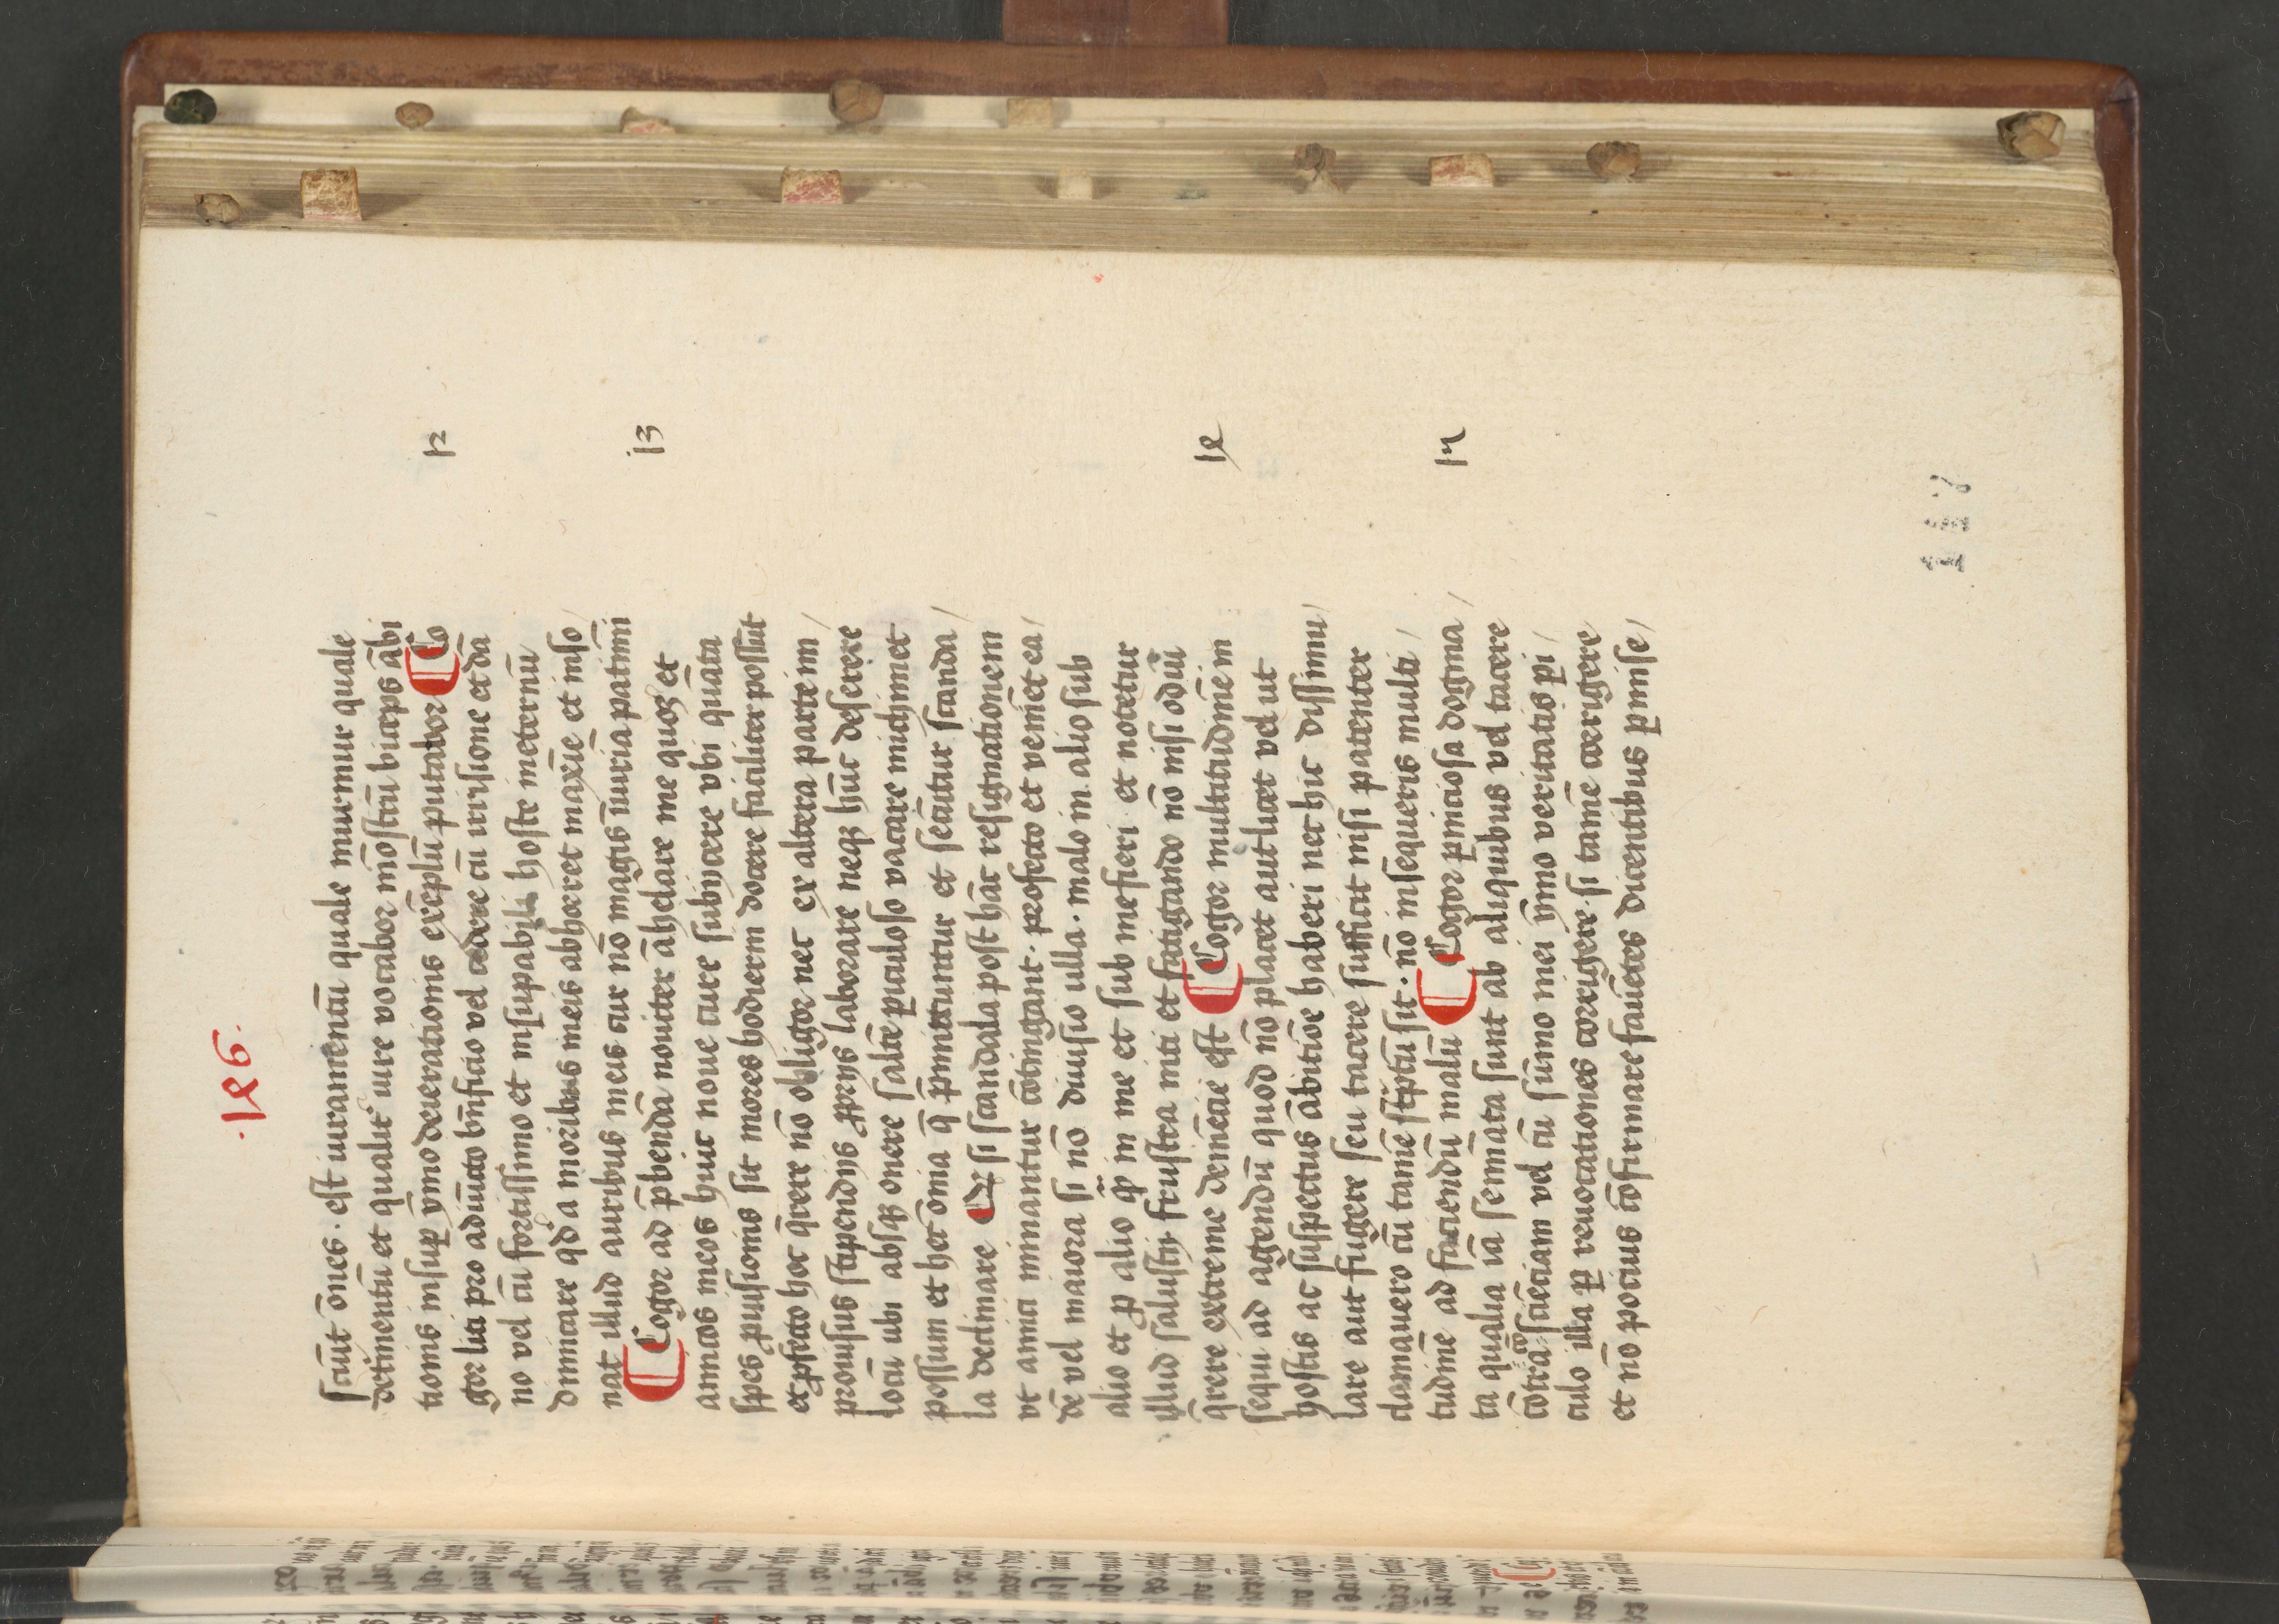 .146.
scūt ōnes . est iuramentū quale murmur quale
det̄mentū et qualit̄ iure vocabor mōstrū biceps ābi
tionis insup̱ ȳmo deierationis exēplū putabor ¶ Co
12
gor liti pro adiūcto bn̄ficio vel cedere cū irrisione et dā
no vel cū fortissimo et insupabili hoste ineternū
dimicare qd̄ a moribus meis abhorret maxīe et inso
nat illud auribus meis cur nō magis īiuriā patimīni
¶ Cogor ad p̄bendā nouiter āhelare me quoꝫ et
13
amicos meos huic noue cure subijcere vbi quāta
spes ꝓuisionis sit mores hodierni docere faciliter possūt
et ꝓfecto hoc q̄rere nō obligor nec ex altera parte im
prouisus stipendijs ꝓprijs laborare neqꝫ hūc deserere
locū ubi absqꝫ onere saltē ꝑiculoso vacare michimet
possum et hec ōnia q̄ p̄mittuntur et secātur scanda
la declinare Et si scandala post hāc resignationem
vt amici minantur cōtingant . profecto et veniēt ea
dē vel maiora si nō diuisio ulla . malo in alio sub
alio et ꝓ alio ꝙ̄ in me et sub me fieri et notetur
illud salustij frustra niti et fatigando nō nisi odiū
q̄rere extreme demētie est ¶ Cogor multitudinē in
14
sequi ad agendū quod nō placet aut licet vel ut
hostis ac suspectus ābitiōe haberi nec hic dissimu
lare aut fugere seu tacere sufficit nisi patenter
clamauero cū tamē sc̄ptū sit . nō insequeris multi
tudinē ad faciendū malū ¶ Cogor ꝑniciosa dogma
15
ta qualia iā semīata sunt ab aliquibus vel tacere
cōtra cōsciēciam vel cū sūmo mei ȳmo veritatis ꝑi
culo illa ꝑ reuocationes corrigere . si tamē corrigere
et nō potius cōfirmare fauētes dicentibus ꝑmise
147